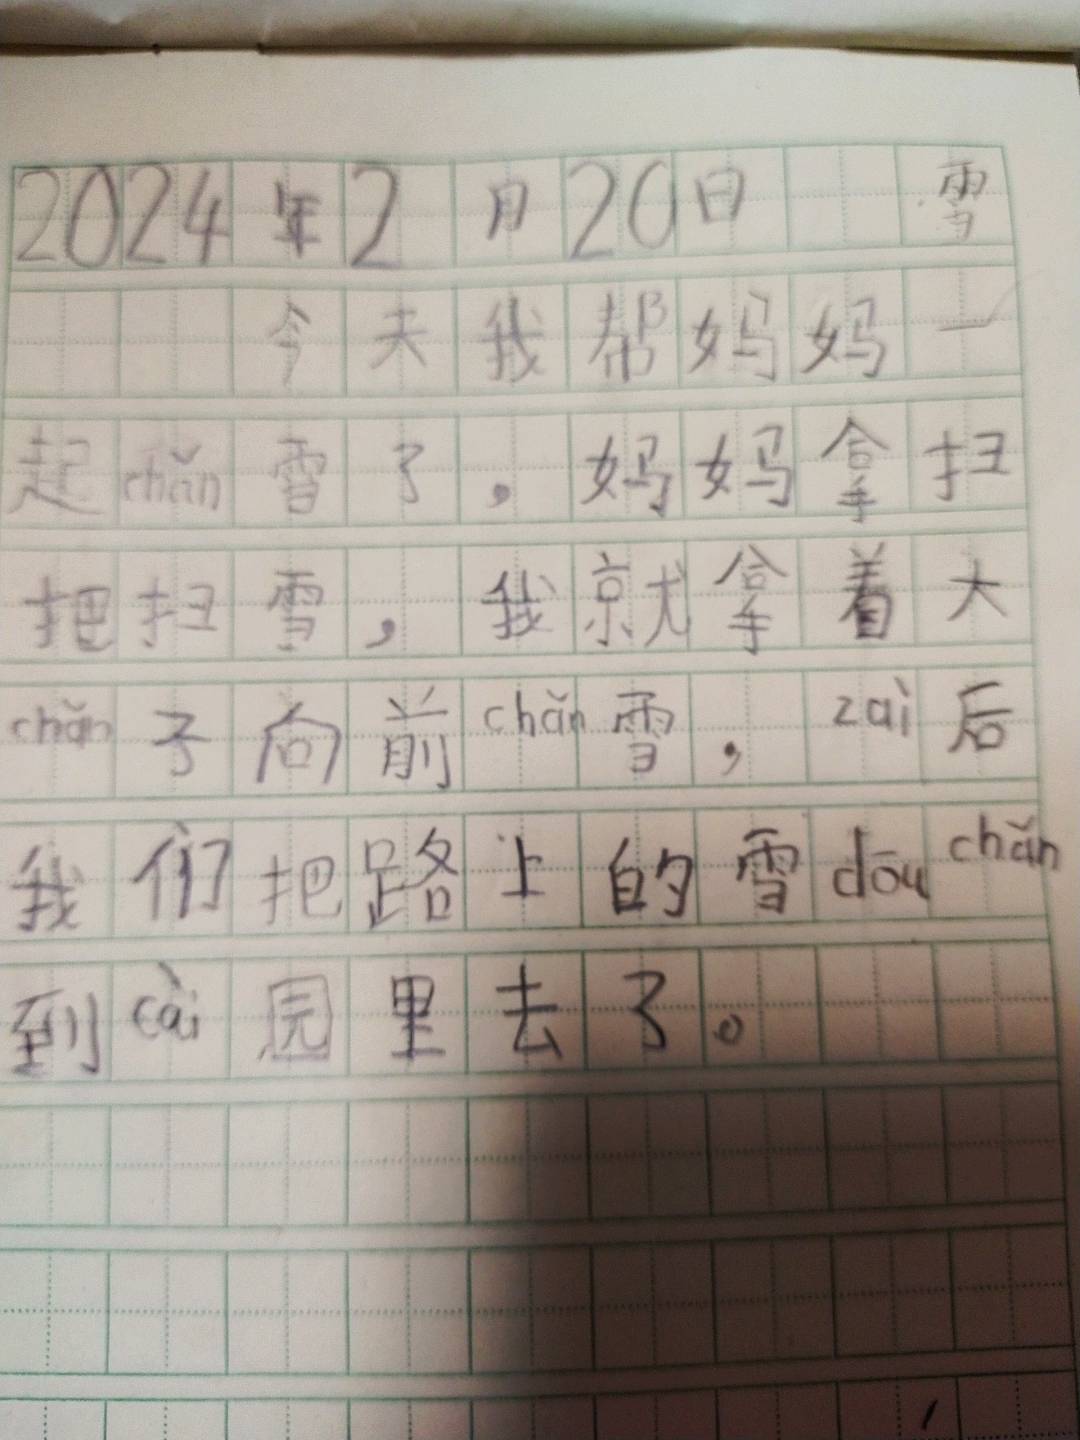 2024年2月20日 雪
今天我帮妈妈一
起chǎn雪了。妈妈拿扫
把扫雪，我就拿着大
chǎn子向前chǎn雪，zaì后
我们把路上的雪dōuchǎn
到cài园里去了。